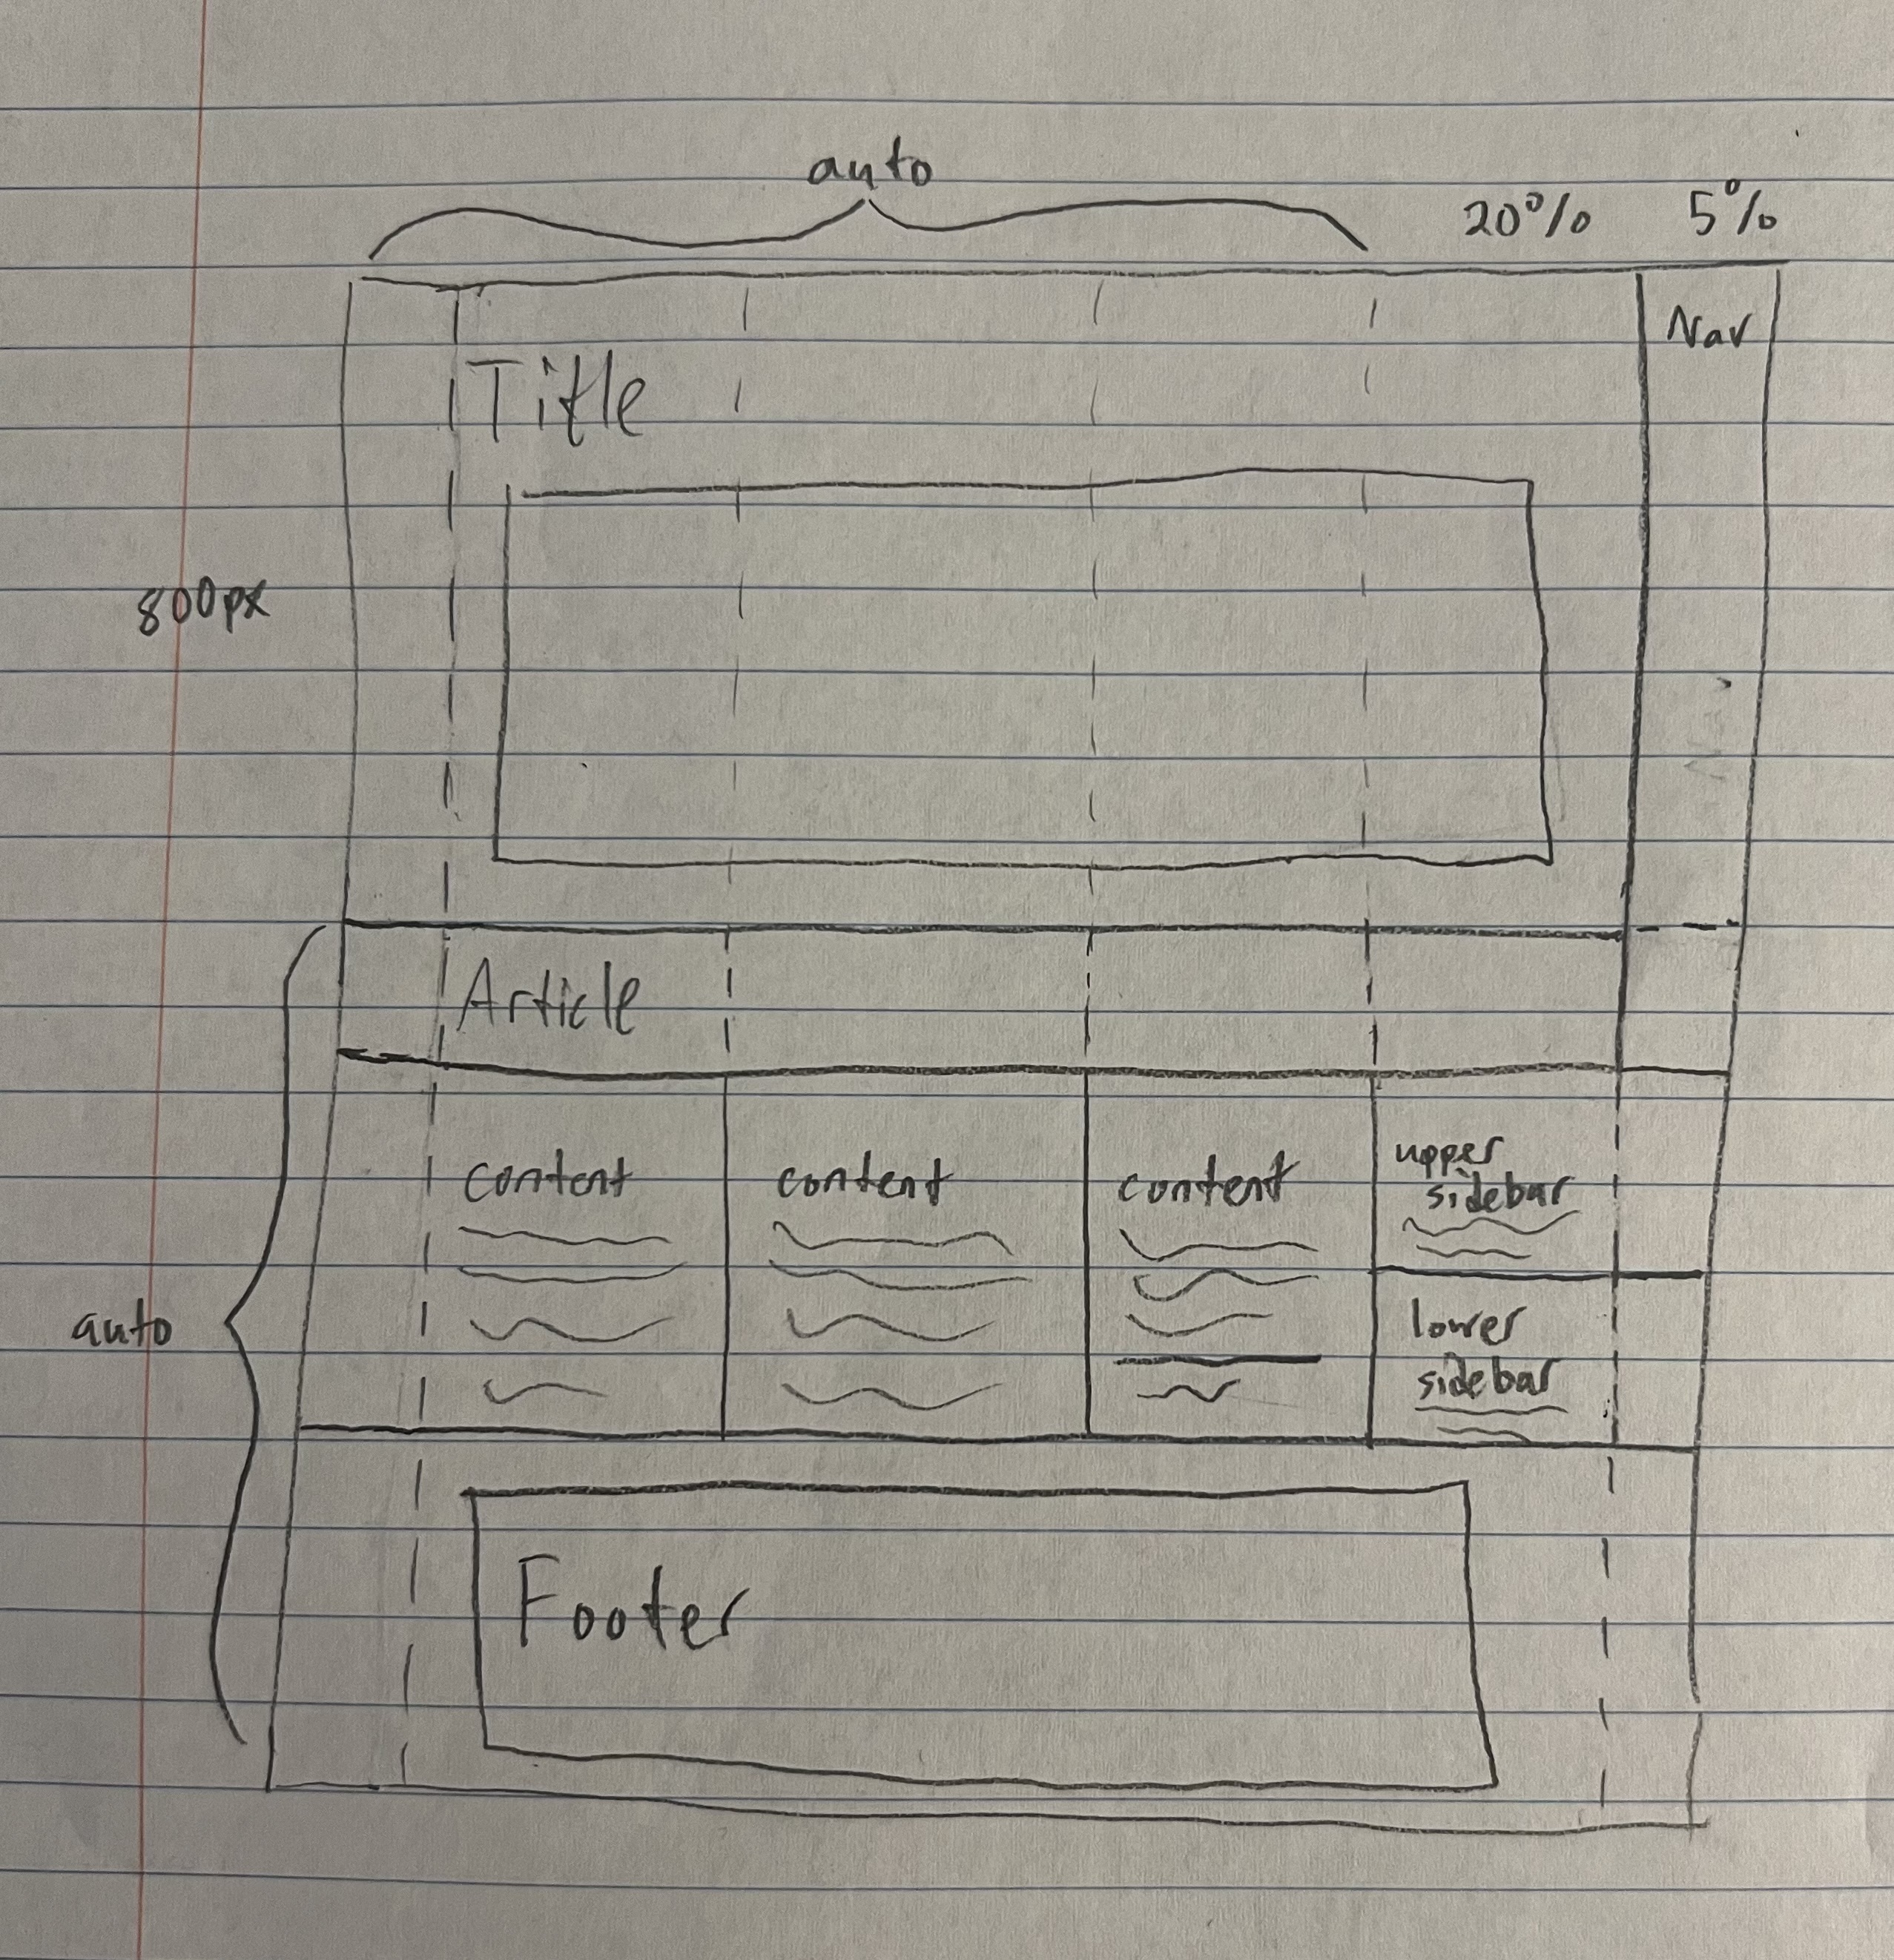 auto
20%
5%
Nav
Title
800px
Article
content
content
content
upper
sidebar
auto
lower
sidebar
Footer